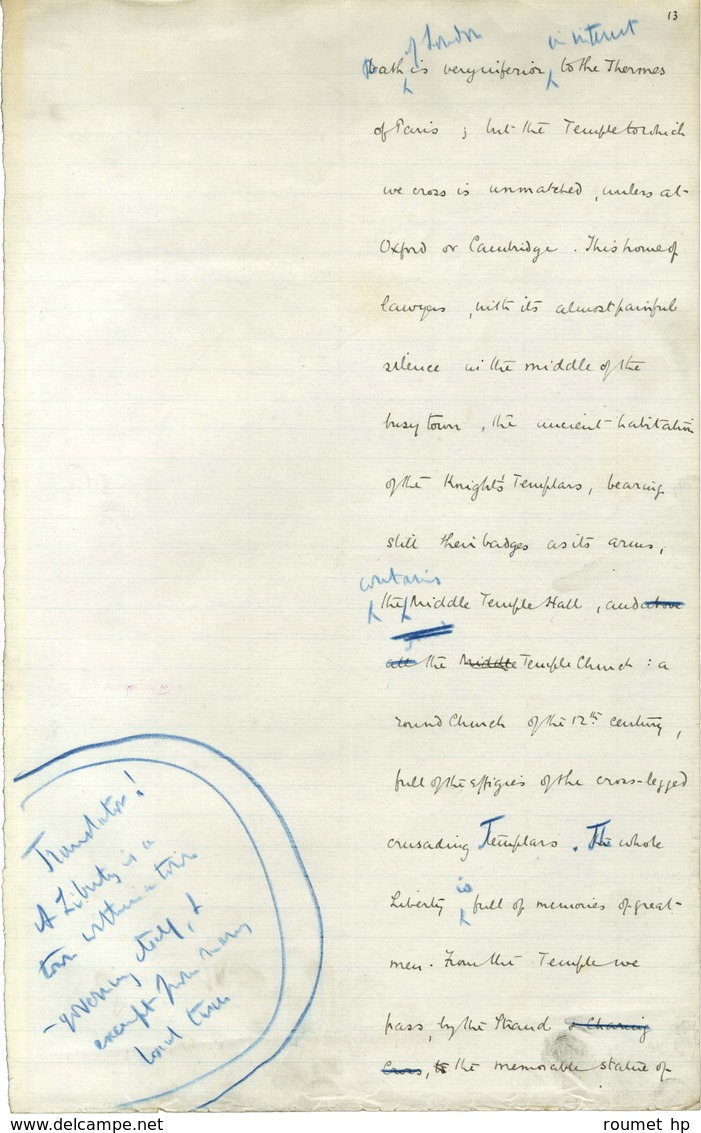 13
of London in interest
Bath is very inferior, to the Thermes
of Paris ; but the Temple to which
we cross is unmatched, unless at
Oxford or Cambridge. This home of
lawyers, with its almost painful
silence in the middle of the
busy town, the ancient habitation
of the Knights Templars, bearing
still their badges as its arms,
contains
the Middle Temple Hall, and above
all the Middle Temple Church : a
round Church of the 12th century,
full of the effigies of the cross-legged
crusading Templars. The whole
is
Liberty full of memories of great
men. From the Temple we
pass, by the Strand & Charing
Cross, to the memorable statue of
Translator!
A Liberty is a
town within a town
governing itself, &
exempt from many
local
roumet hp